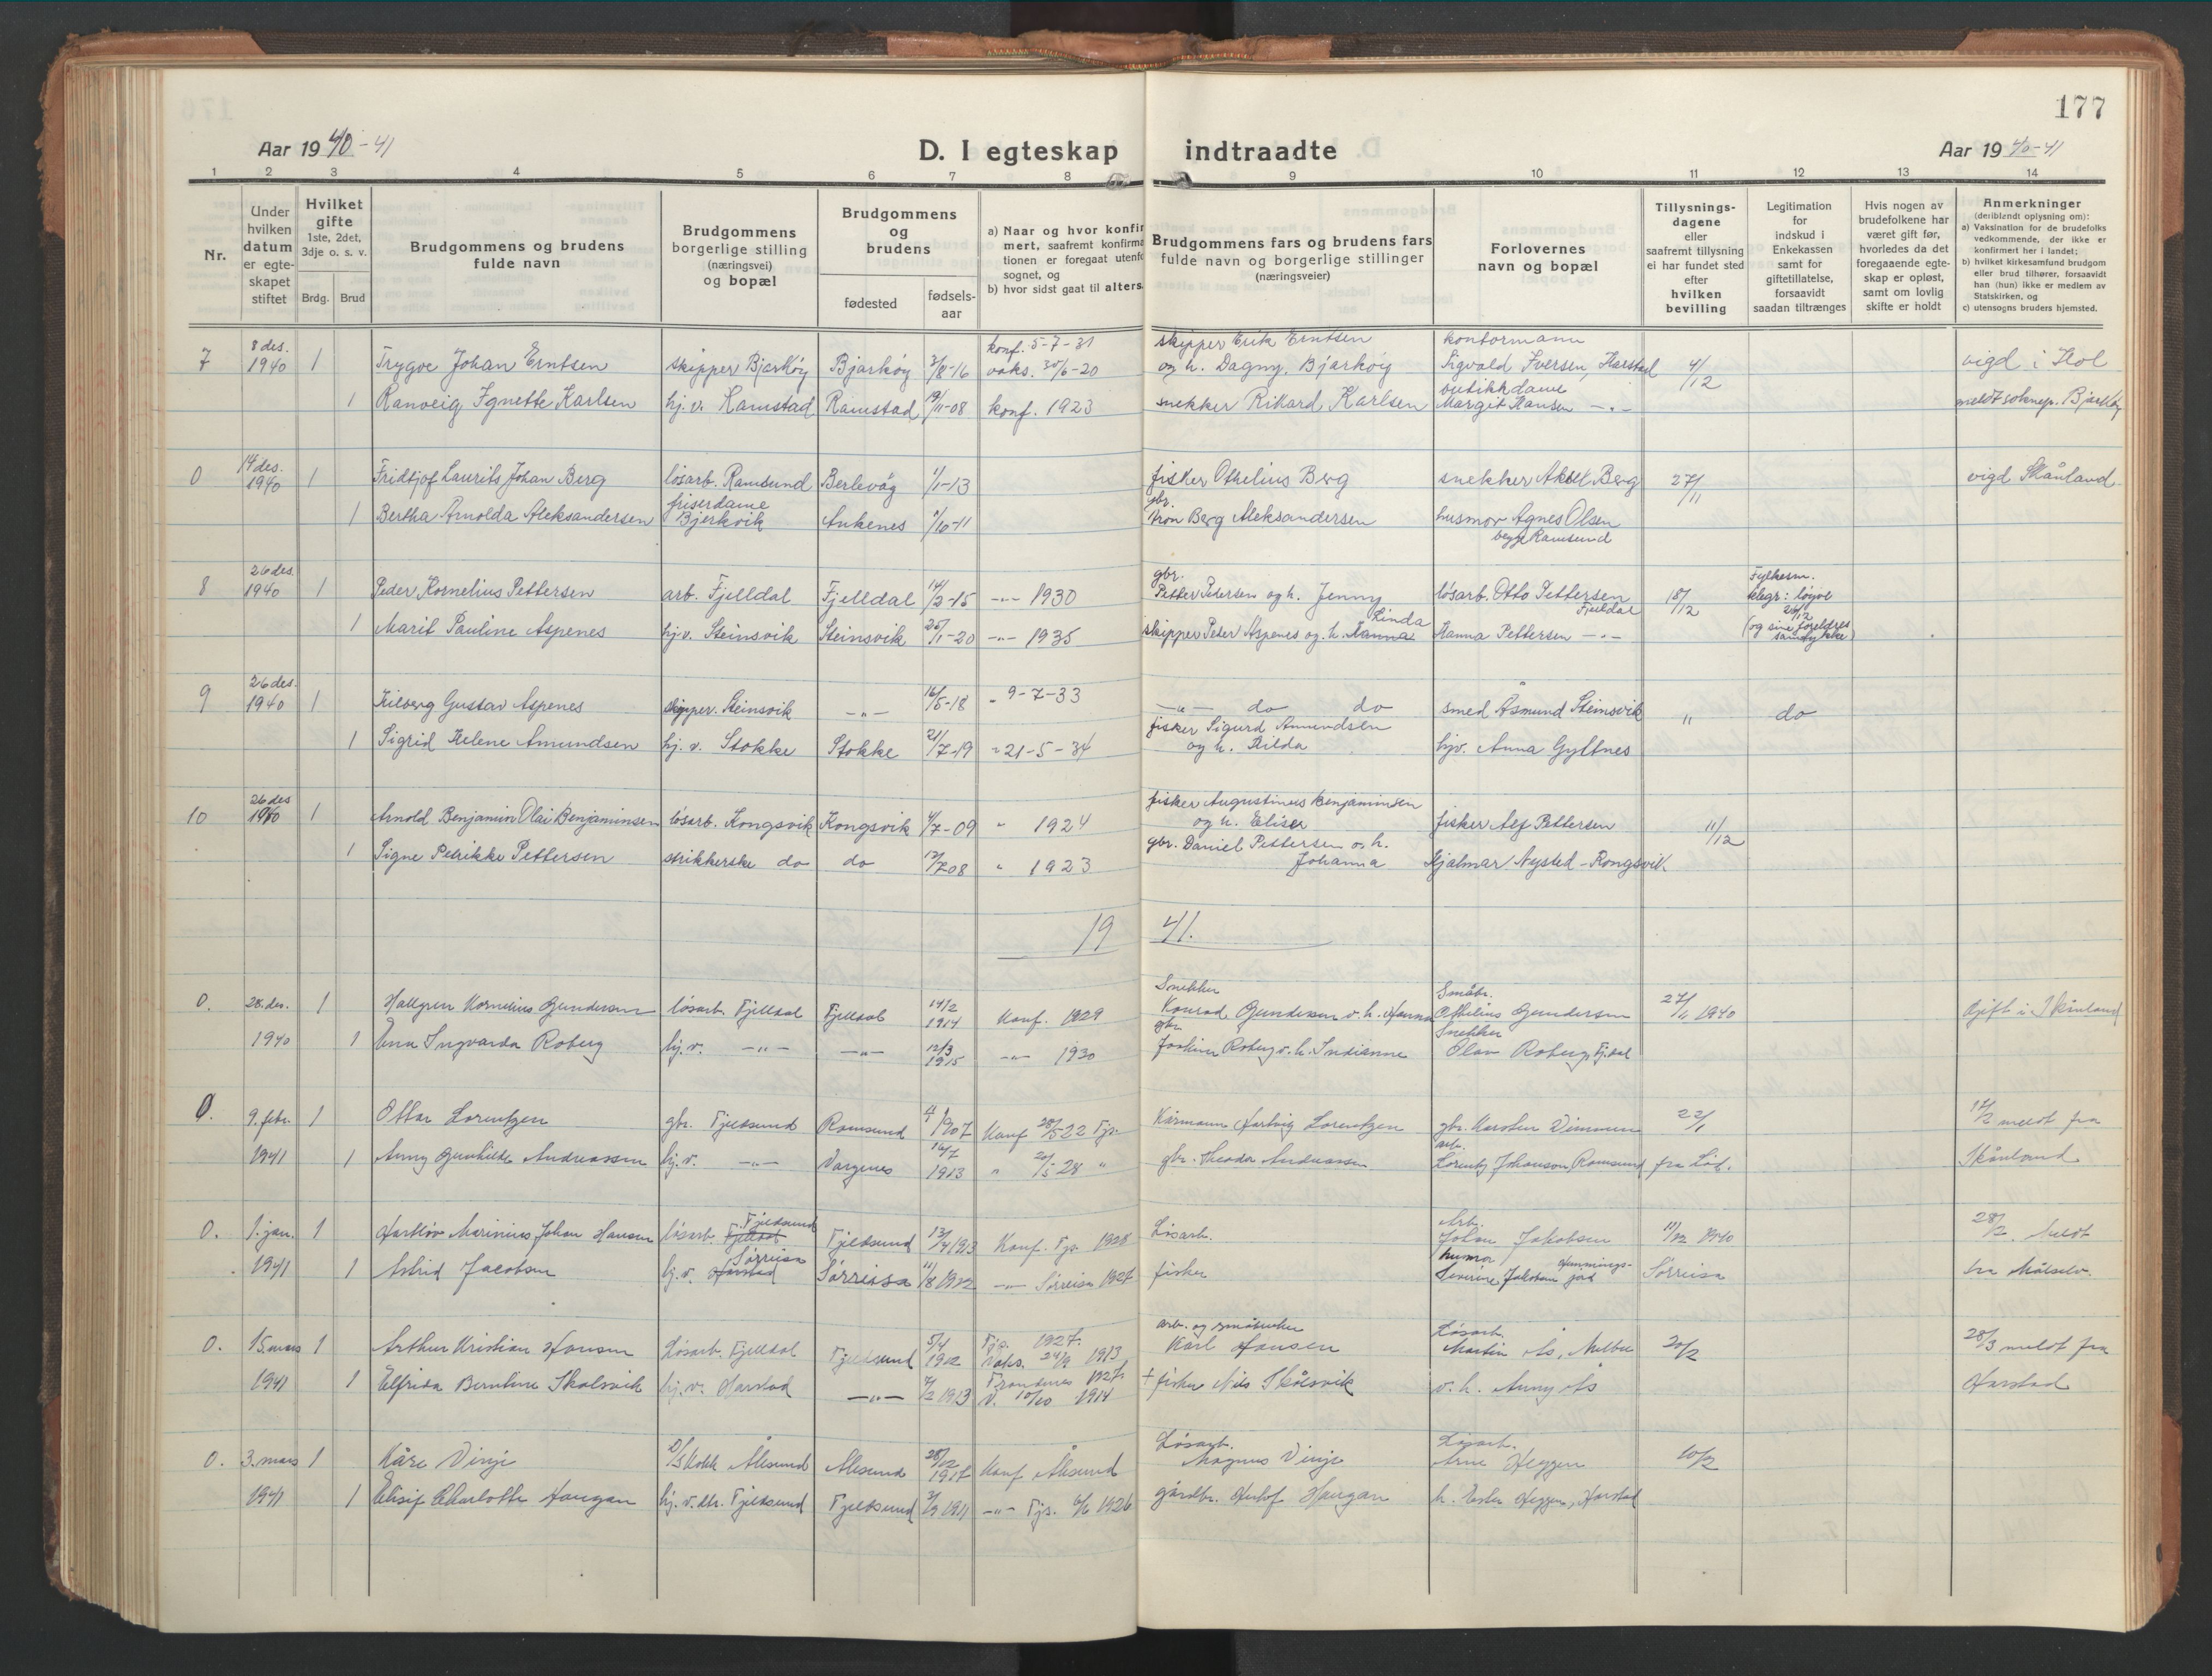 177
Aar 1940-41
D. I egteskap indtraadte
Aar 1940-41
1 2 3 4 5 6 7 8 9 10 11 12 13 14
Nr.
Under hvilken datum er egteskapet stiftet
Hvilket gifte 1ste, 2det, 3dje o. s. v.
Brdg. Brud
Brudgommens og brudens fulde navn
Brudgommens borgerlige stilling (næringsvei) og bopæl
Brudgommens og brudens
fødested
fødselsaar
a) Naar og hvor konfirmert, saafremt konfirmationen er foregaat utenfor sognet, og
b) hvor sidst gaat til alters
Brudgommens fars og brudens fars fulde navn og borgerlige stillinger (næringsveier)
Forlovernes navn og bopæl
Tillysningsdagene eller saafremt tillysning ei har fundet sted efter hvilken bevilling
Legitimation for indskud i Enkekassen samt for giftetillatelse, forsaavidt saadan tiltrænges
Hvis nogen av brudefolkene har været gift før, hvorledes da det foregaaende egteskap er opløst, samt om lovlig skifte er holdt
Anmerkninger (deriblandt oplysning om):
a) Vaksination for de brudefolks vedkommende, der ikke er konfirmert her i landet;
b) hvilket kirkesamfund brudgom eller brud tilhører, forsaavidt han (hun) ikke er medlem av Statskirken, og
c) utensogns bruders hjemsted.
7 8 des. 1940 1 Trygve Johan Erntsen skipper Bjarkøy Bjarkøy 3/8-16 konf. 5-7-31 vaks. 30/6-20 skipper Erik Erntsen og h. Dagny, Bjarkøy kontormann Sigvald Iversen, Harstad 4/12 vigd i Hol
1 Ranveig Ignette Karlsen hj. v. Ramstad Ramstad 19/11-08 konf. 1923 snekker Rikard Karlsen butikkdame Margit Hansen -"- meldt soknep. Bjarkøy
0 14 des. 1940 1 Fridtjof Laurits Johan Berg løsarb. Ramsund Berlevåg 1/1-13 fisker Othelius Berg snekker Aksel Berg 27/11 vigd Skånland
1 Bertha Arnolda Aleksandersen friserdame Bjerkvik Ankenes 1/10-11 gbr. Aron Berg Aleksandersen husmor Agnes Olsen begge Ramsund
8 26 des. 1940 1 Peder Kornelius Pettersen arb. Fjelldal Fjelldal 14/2-15 -"- 1930 gbr. Petter Petersen og h. Jenny løsarb. Otto Pettersen Fjelldal 18/12 Fylkesm. telegr: løyve 24/12
1 Marit Pauline Aspenes hj. v. Steinsvik Steinsvik 25/11-20 -"- 1935 skipper Peter Aspenes og h. Hanna Linda Hanna Pettersen -"- (og sine foreldres samtykke)
9 26 des. 1940 1 Hilberg Gustav Aspenes skipper. Steinsvik -"- 16/5-18 " 9-7-33 -"- do do smed Åsmund Steinsvik " do
1 Sigrid Helene Amundsen hj. v. Stokke Stokke 21/7-19 " 21-5-34 fisker Sigurd Amundsen og h. Hilda hjv. Anna Gyltnes
10 26 des 1940 1 Arnold Benjamin Olai Benjaminsen løsarb. Kongsvik Kongsvik 4/7-09 " 1924 fisker Augustinus Benjaminsen og h. Eliser fisker Alf Pettersen 11/12
1 Signe Petrikke Pettersen strikkerske do do 12/7 08 " 1923 gbr. Daniel Pettersen o. h. Johanna Hjalmar Nysted - Kongsvik.
19 41.
0. 28. des. 1 Hallgren Kornelius Gundersen løsarb. Fjelldal Fjelldal 14/2 1914 Konf. 1929 Snekker Konrad Gundersen o. h. Hanna Småbr. Othelius Gundersen 27/11 1940 Gift i Skånland
1940 1 Enn Ingvarda Roberg hj. v. -"- -"- 12/3 1915 -"- 1930 gbr Joakim Roberg o. h. Indianne Snekker Olav Roberg, Fj.dal
0. 9. febr. 1 Ottar Lorentzen gbr. Fjeldsund Ramsund 4/1 1907 Konf 28/5 22 Fjs. Kårmann Hartvig Lorentzen gbr. Karsten Dimmen 22/1 12/2 meldt fra
1941 1 Anny Gunhilde Andreassen hj. v. -"- Vargenes 16/7 1913 " 20/5 28 " gbr. Theodor Andreassen arb. Lorentz Johansen, Ramsund fra Løt. Skånland
0. 1. jan. 1 Hartløv Marinius Johan Hansen løsarb. Fjelldal Fjeldsund Fjeldsund 13/4 1913 Konf. Fjs. 1928 Løsarb. Arb. Johan Jakobsen 11/12 1940 28/2. Meldt
1941 1 Astrid Jacobsen hj. v. Harstad Sørreisa Sørreisa 11/8 1912 -"- Sørreisa 1927 fisker husmor Severine Jakobsen Hemmingsjord Sørreisa fra Målselv.
0. 15. mars 1 Arthur Kristian Hansen Løsarb. Fjelldal Fjeldsund 5/4 1912 Fjs. 1927. Vaks. 24/9 1913 arb. og småbruker Karl Hansen Løsarb. Martin Ås, Melbu 20/2 28/3 meldt fra
1941 1 Elfrida Berntine Skålsvik hj. v. Harstad -"- 7/2 1913 Trondenes 1927 V. 10/10 1914 + fisker Nils Skålsvik o. h. Anny Ås Harstad
0. 3. mars 1 Kåre Vinje D/S Kokk Ålesund Ålesund 28/12 1917 Konf Ålesund Løsarb. Magnus Vinje Løsarb. Arne Heggen 10/2
1941 1 Elisif Charlotte Haugan hj. v. Fjeldsund Fjeldsund 2/9 1911 -"- Fjs. 6/6 1926 gårdbr. Haugan h. Ester Heggen, Harstad